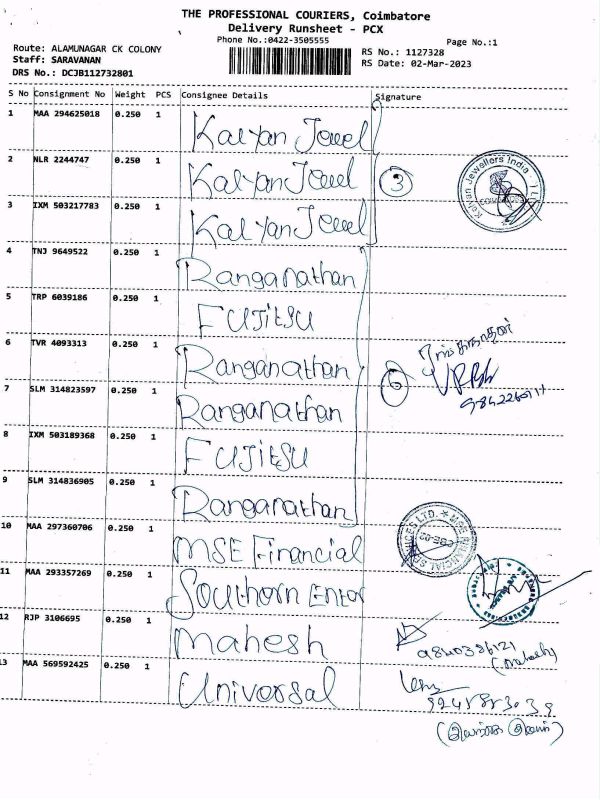 THE PROFESSIONAL COURIERS, Coimbatore
Delivery Runsheet - PCX
Phone No.:0422-3505555
Page No.:1
Route: ALAMUNAGAR CK COLONY
RS No.: 1127328
Staff: SARAVANAN
RS Date: 02-Mar-2023
DRS No.: DCJB112732801
S No Consignment No Weight PCS Consignee Details Signature
1 MAA 294625018 0.250 1 Kalyan Jewel
2 NLR 2244747 0.250 1 Kalyan Jewel 3
Kalyan Jewellers India
3 IXM 503217783 0.250 1 Kalyan Jewel
4 TNJ 9649522 0.250 1 Ranganathan
5 TRP 6039186 0.250 1 FUJITSU
6 TVR 4093313 0.250 1 Ranganathan 6
7 SLM 314823597 0.250 1 Ranganathan
8 IXM 503189368 0.250 1 FUJITSU
9 SLM 314836905 0.250 1 Ranganathan
10 MAA 297360706 0.250 1 MSE Financial
MSE FINANCIAL SERVICES LTD.
11 MAA 293357269 0.250 1 Southern Enter
12 RJP 3106695 0.250 1 Mahesh
(Mahesh)
13 MAA 569592425 0.250 1 Universal